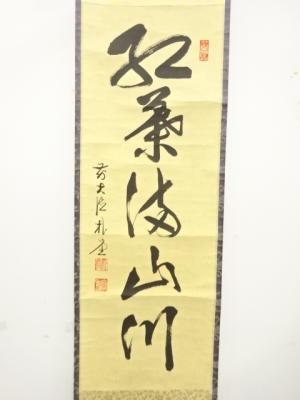 紅葉満山川
前大徳